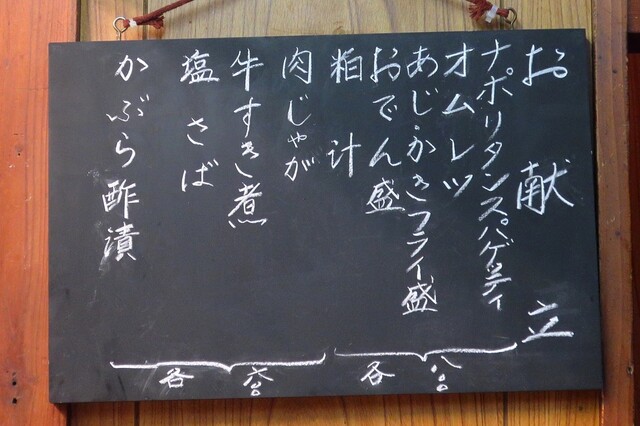 お献立
ナポリタンスパゲッティ
オムレツ
あじ・かきフライ盛
おでん盛
粕計
各八〇〇
肉じゃが
牛すき煮
塩さば
かぶら酢漬
各六〇〇